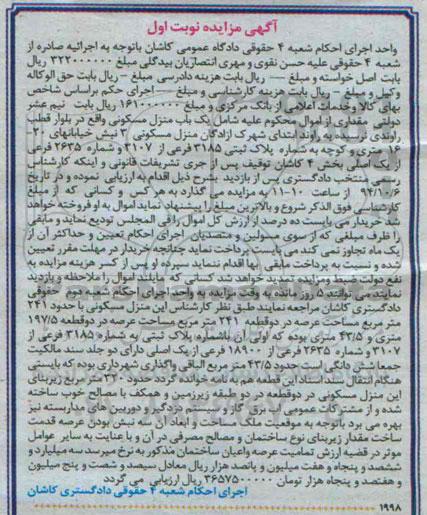 آگهی مزایده نوبت اول
واحد اجرای احکام شعبه ۴ حقوقی دادگاه عمومی کاشان باتوجه به اجرائیه صادره از
شعبه ۴ حقوقی علیه حسن نقوی و مهری انتصاریان بیدگلی مبلغ ۳۲۲۰۰۰۰۰۰ ریال
بابت اصل خواسته و مبلغ --- ریال بابت هزینه دادرسی مبلغ -- ریال بابت حق الوکاله
وکیل و مبلغ -- ریال بابت هزینه کارشناسی و مبلغ --- اجرای حکم براساس شاخص
بهای کالا وخدمات اعلامی از بانک مرکزی و مبلغ ۱۶۱۰۰۰۰۰ ریال بابت نیم عشر
دولتی مقداری از اموال محکوم علیه شامل یک باب منزل مسکونی واقع در بلوار قطب
راوندی نرسیده به راوند ابتدای شهرک ازادگان منزل مسکونی ۳ نبش خیابانهای ۳۰
۱۶ متری و کوچه به شماره پلاک ثبتی ۳۱۸۵ فرعی از ۳۱۰۷ و شماره ۲۶۳۵ فرعی
از یک اصلی بخش ۴ کاشان توقیف پس از جری تشریفات قانونی و اینکه کارشناس
رسمی منتخب دادگستری پس از بازدید بشرح ذیل اقدام به ارزیابی نموده و در تاریخ
۹۴/۱۰/۲۶ از ساعت ۱۰-۱۱ به مزایده می گذارد به هر کس و کسانی که از مبلغ
کارشناسی فوق الذکر شروع و بالاترین مبلغ را پیشنهاد نماید اموال به او فروخته خواهد
شد خریدار می بایست ده درصد از ارزش کل اموال را فی المجلس تودیع نماید و مابقی
را ظرف مبلغی که از سوی مسولین و متصدیان اجرای احکام تعیین و حداکثر آن از
یک ماه تجاوز نمی کند می بایست پرداخت نماید چنانچه خریدار در مهلت مقرر تعیین
شده و نسبت به پرداخت مابقی بها اقدام ننماید سپرده او پس از کسر هزینه مزایده به
نفع دولت ضبط ومزایده تجدید خواهد شد کسانی که مایلند اموال را ملاحظه و بازدید
نمایند می توانند ۵ روز مانده به وقت مزایده به واحد اجرای احکام شعبه دوم حقوقی
دادگستری کاشان مراجعه نمایند طبق نظر کارشناس این منزل مسکونی با حدود ۲۴۱
متر مربع مساحت عرصه در دوقطعه ۲۴۱ متر مربع مساحت عرصه در دوقطعه ۱۹۷/۵
متری و ۴۳/۵ متری بوده که اولی آن باشماره پلاک ثبتی به شماره ۳۱۸۵ فرعی از
۳۱۰۷ و شماره ۲۶۳۵ فرعی از ۱۸۹۰۰ فرعی از یک اصلی دارای دو جلد سند مالکیت
جمعا شش دانگی است حدود ۴۳/۵ متر مربع الباقی واگذاری شهرداری بوده که بایستی
هنگام انتقال سند اسناد این قطعه هم به نامه خوانده گردد حدود ۳۴۰ متر مربع زیربنای
این منزل مسکونی در دوقطعه در دو طبقه زیرزمین و همکف با مصالح خوب ساخته
شده و از مشترکات عمومی آب برق گاز و سیستم دزدگیر و دوربین های مداربسته نیز
بهره می برد باتوجه به موقعیت ملک مساحت و ابعاد آن سه نبش بودن عرصه قدمت
ساخت مقدار زیربنای نوع ساختمان و مصالح مصرفی در آن و با عنایت به سایر عوامل
موثر در قضیه ارزش تمامیت عرصه واعیان ساختمان مذکور به نرخ میرسد سه میلیارد و
ششصد و پنجاه و هفت میلیون و پانصد هزار ریال معادل سیصد و شصت و پنج میلیون
و هفتصد و پنجاه هزار تومان ۳۶۵۷۵۰۰۰۰۰ ریال ارزیابی می گردد
اجرای احکام شعبه ۴ حقوقی دادگستری کاشان
۱۹۹۸